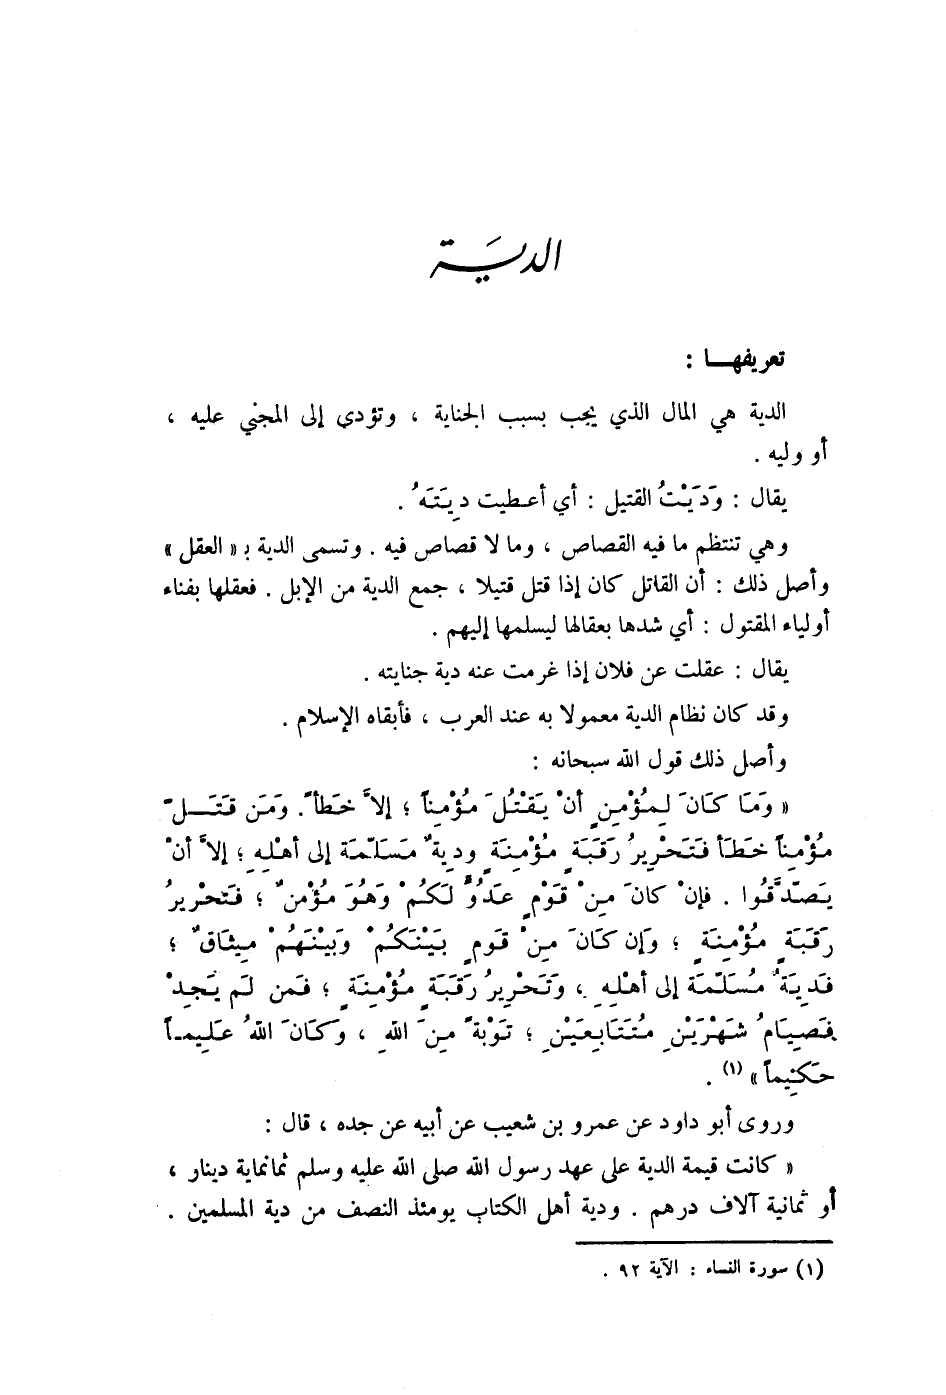 الديـَـة
تعريفهــا :
الدية هي المال الذي يجب بسبب الجناية ، وتؤدي إلى المجني عليه ،
أو وليه .
يقال : وَدَيْتُ القتيل : أي أعطيت دِيَتَهُ .
وهي تنتظم ما فيه القصاص ، وما لا قصاص فيه . وتسمى الدية بـ « العقل »
وأصل ذلك : أن القاتل كان إذا قتل قتيلا ، جمع الدية من الإبل . فعقلها بفناء
أولياء المقتول : أي شدها بعقالها ليسلمها إليهم .
يقال : عقلت عن فلان إذا غرمت عنه دية جنايته .
وقد كان نظام الدية معمولا به عند العرب ، فأبقاه الإسلام .
وأصل ذلك قول الله سبحانه :
« وَمَا كَانَ لِمُؤْمِنٍ أنْ يَقْتُلَ مُؤْمِناً ؛ إلاَّ خَطَأً . وَمَن قَتَـلَ
مُؤْمِناً خَطَأ فَتَحْرِيرُ رَقَبَةٍ مُؤْمِنَةٍ وديةٌ مَسَلّمَة إلى أهْلِهِ ؛ إلاَّ أنْ
يَصّدَّقُوا . فإنْ كانَ مِنْ قَوْمٍ عَدُوٍّ لَكُمْ وَهُوَ مُؤْمنٌ ؛ فَتَحْريرُ
رَقَبَةٍ مُؤْمِنَةٍ ؛ وَإن كَانَ مِنْ قَومٍ بَيْنَكُمْ وَبَيْنَهُمْ مِيثاقٌ ؛
فَدِيَةٌ مُسَلّمَة إلى أهْلِهِ ، وَتَحْرِيرُ رَقَبَةٍ مؤْمِنَةٍ ؛ فَمن لَم يَجِدْ
فَصِيَامُ شَهْرَيْنِ مُتَتَابِعَيْنِ ؛ تَوْبَةً مِنَ اللهِ ، وَكَانَ اللهُ عَلِيمـاً
حَكيماً » (١) .
وروى أبو داود عن عمرو بن شعيب عن أبيه عن جده ، قال :
« كانت قيمة الدية على عهد رسول الله صلى الله عليه وسلم ثمانماية دينار ،
أو ثمانية آلاف درهم . ودية أهل الكتاب يومئذ النصف من دية المسلمين .
(١) سورة النساء : الآية ٩٢ .